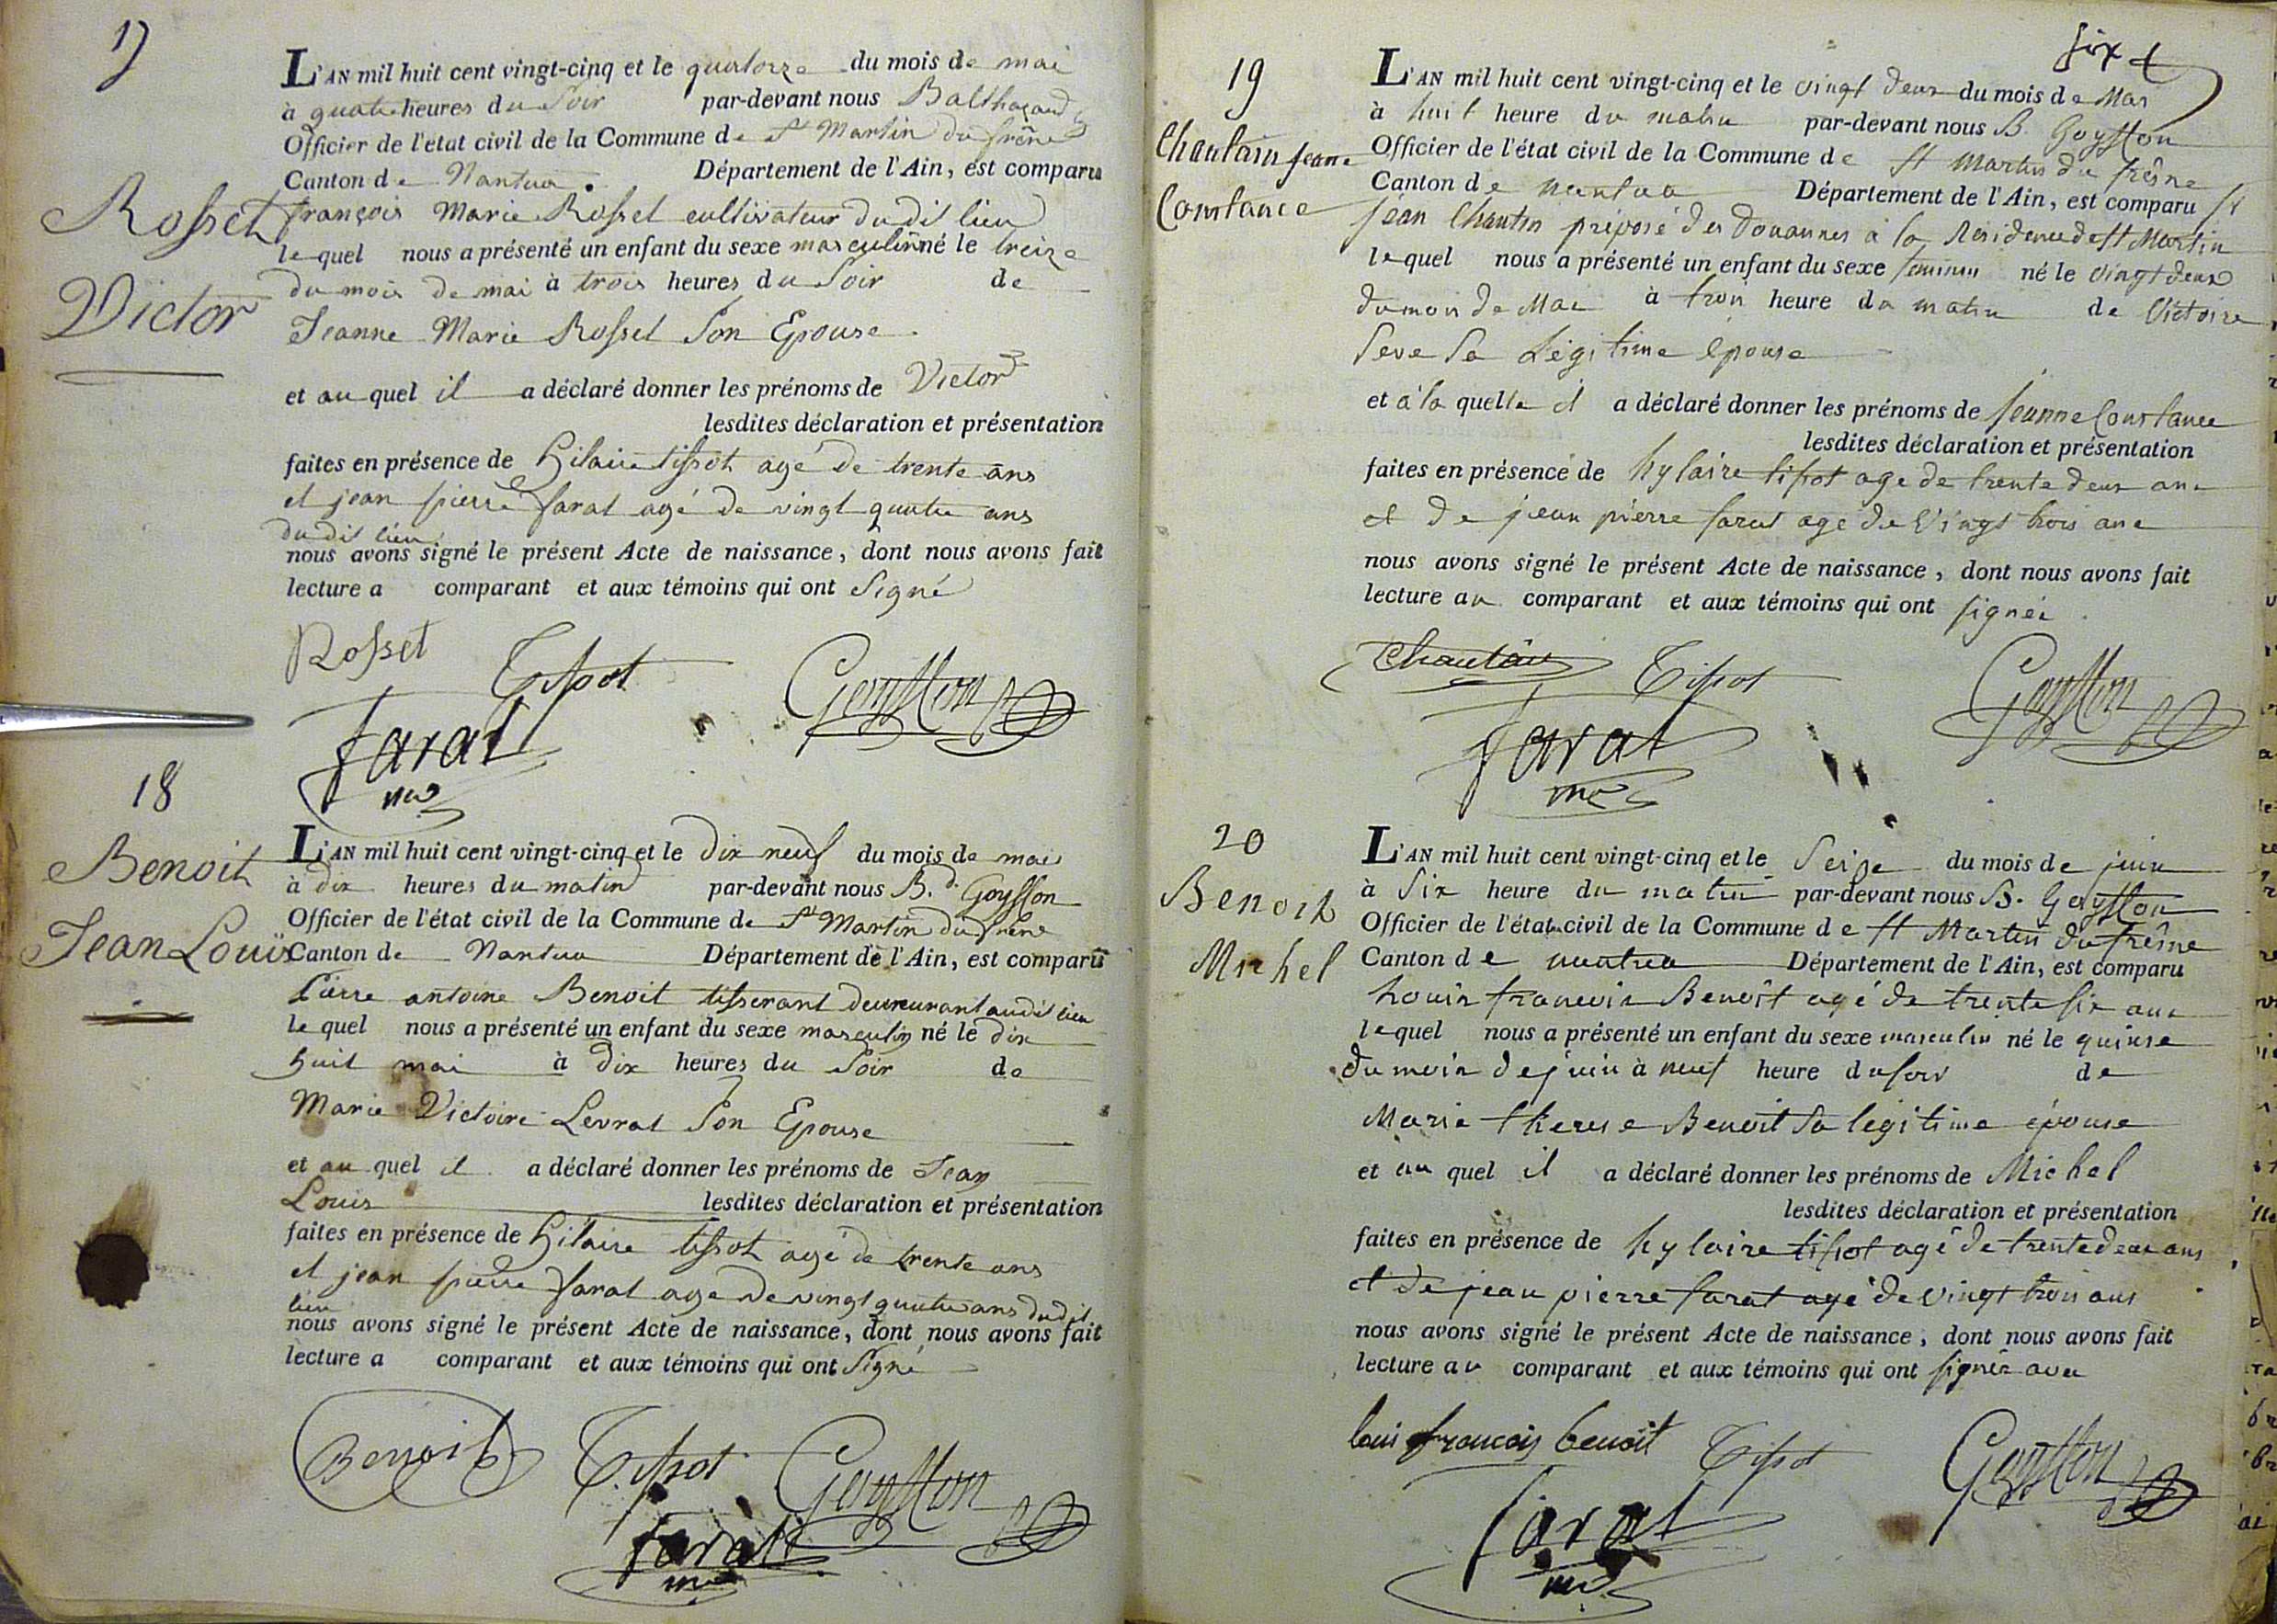 17
Rosset
Victor
L'AN mil huit cent vingt-cinq et le quatorze du mois de mai
à quatre heures du Soir par-devant nous Balthazard G
Officier de l'état civil de la Commune de St Martin du frêne
Canton de Nantua Département de l'Ain, est comparu
françois Marie Rosset cultivateur dudit lieu
lequel nous a présenté un enfant du sexe masculin né le treize
du mois de mai à trois heures du Soir de
Jeanne Marie Rosset Son Epouse
et au quel il a déclaré donner les prénoms de Victor
lesdites déclaration et présentation
faites en présence de hilaire tissot agé de trente ans
et jean pierre farat agé de vingt quatre ans
dudit lieu
nous avons signé le présent Acte de naissance, dont nous avons fait
lecture a comparant et aux témoins qui ont Signé
Rosset
Tissot
Goyffon
farat
18
Benoit
Jean Louis
L'AN mil huit cent vingt-cinq et le dix neuf du mois de mai
à dix heures du matin par-devant nous B.d Goyffon
Officier de l'état civil de la Commune de St Martin du frêne
Canton de Nantua Département de l'Ain, est comparu
Pierre antoine Benoit tisserant demeurant audit lieu
lequel nous a présenté un enfant du sexe masculin né le dix
huit mai à dix heures du Soir de
Marie Victoire Levrat Son Epouse
et au quel il a déclaré donner les prénoms de Jean
Louis lesdites déclaration et présentation
faites en présence de hilaire tissot agé de trente ans
et jean pierre farat age de vingt quatre ans dudit
lieu
nous avons signé le présent Acte de naissance, dont nous avons fait
lecture a comparant et aux témoins qui ont Signé
Benoit
Tissot
Goyffon
farat
six
19
Chantain jeane
Constance
L'AN mil huit cent vingt-cinq et le vingt deux du mois de Mai
à huit heure du matin par-devant nous B. Goyffon
Officier de l'état civil de la Commune de St Martin du frêsne
Canton de nantua Département de l'Ain, est comparu Sr
jean Chantin préposé des Douannes à la Résidence de St Martin
lequel nous a présenté un enfant du sexe feminin né le vingt deux
du mois de Mai à trois heure du matin de Victoire
Seve Sa Légitime épouse
et à la quelle il a déclaré donner les prénoms de jeanne Constance
lesdites déclaration et présentation
faites en présence de hylaire tissot age de trente deux ans
et de jean pierre farat age de Vingt trois ans
nous avons signé le présent Acte de naissance, dont nous avons fait
lecture au comparant et aux témoins qui ont signés
Tissot
Goyffon
farat
20
Benoit
Michel
L'AN mil huit cent vingt-cinq et le Seize du mois de juin
à Six heure du matin par-devant nous B. Goyffon
Officier de l'état civil de la Commune de St Martin du frêsne
Canton de nantua Département de l'Ain, est comparu
Louis francois Benoit agé de trente six ans
lequel nous a présenté un enfant du sexe masculin né le quinse
du mois de juin à neuf heure du soir de
Marie therese Benoit Sa legitime épouse
et au quel il a déclaré donner les prénoms de Michel
lesdites déclaration et présentation
faites en présence de hylaire tissot agé de trente deux ans
et de jean pierre farat agé de vingt trois ans
nous avons signé le présent Acte de naissance, dont nous avons fait
lecture au comparant et aux témoins qui ont signés avec
louis francois benoit
Tissot
Goyffon
farat